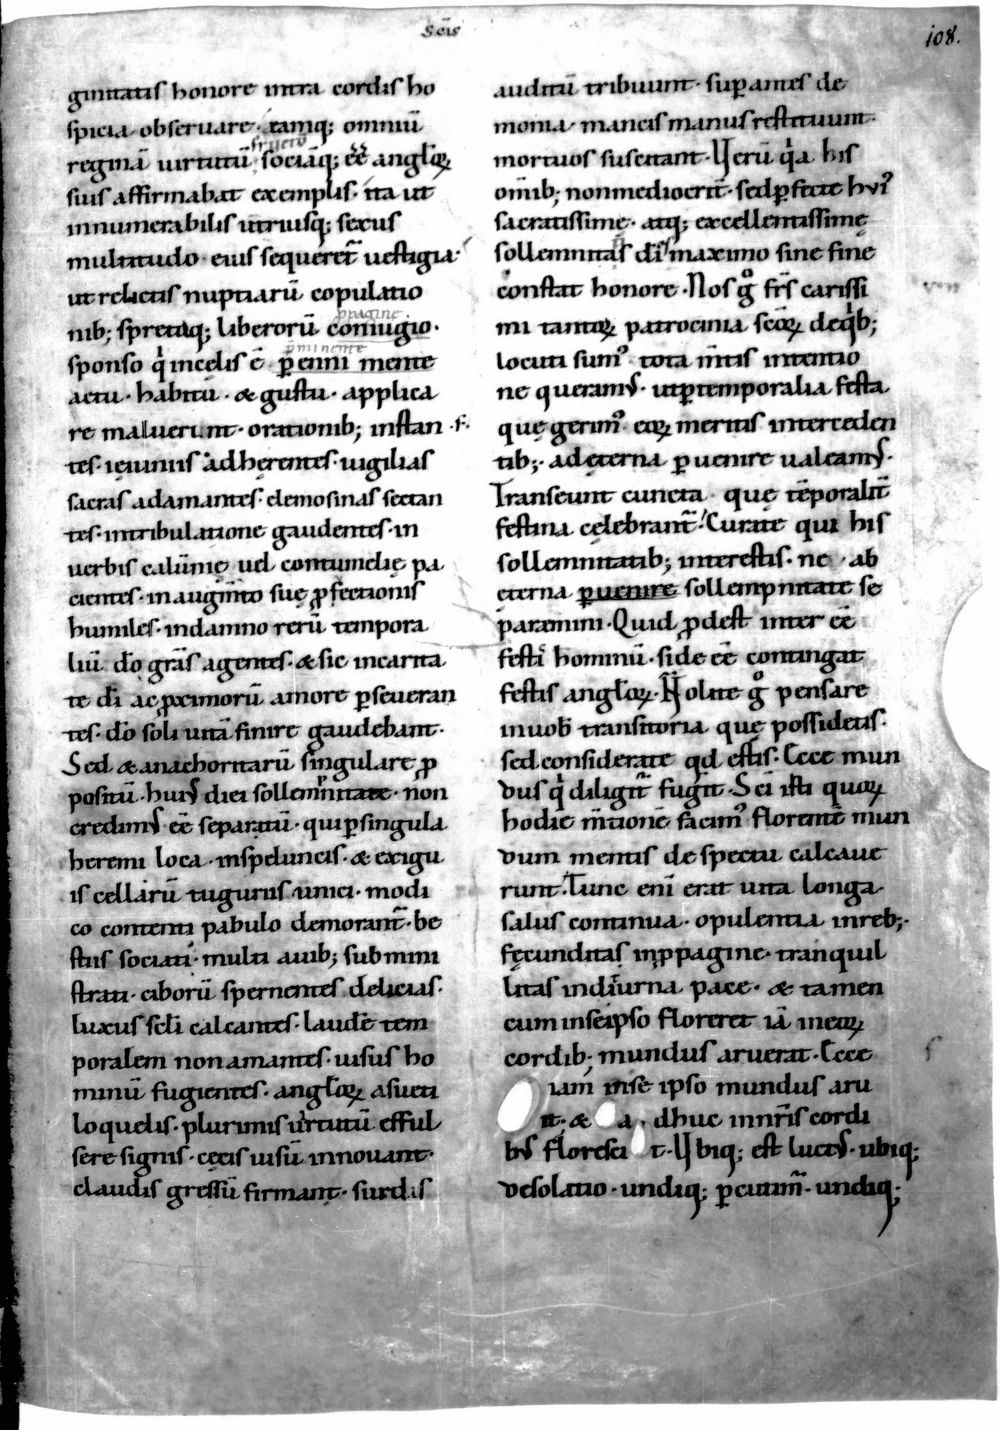 Scis
108.
ginitatis honore intra cordis ho
spicia observare. tamq; omniū
reginā uirtutū sociāq; eē anglꝝ
suis affirmabat exemplis. ita ut
innumerabilis utriusq; sexus
multitudo eius sequeret̄ uestigia.
ut relictis nuptiarū copulatio
ppagine.
nib; spretisq; liberorū coniugio.
pminente
sponso q̇ incelis ē ꝑenni mente
actu. habitu. & gustu. applica
re maluerunt. orationib; instan
tes. ieiuniis adherentes. uigilias
sacras adamantes. elemosinas sectan
tes. intribulatione gaudentes. in
uerbis calūnię uel contumelię pa
cientes. in augm̄to suę ꝓfectionis
humiles. indamno rerū tempora
liū. dō grās agentes. & sic incarita
te dī ac ꝓximorū amore ꝑseueran
tes. dō soli uitā finire gaudebant.
Sed & anachoritarū singulare ꝓ
positū. huiꝰ diei sollemnitate. non
credimꝰ eē separatū. qui ꝑsingula
heremi loca. inspeluncis. & exigu
is cellarū tuguriis. unici. modi
co contenti pabulo demorant̄. be
stiis sociati. multi auib; submini
strati. ciborū spernentes delicias.
luxus sclī calcantes. laudē tem
poralem non amantes. uisus ho
minū fugientes. anglꝝ asueti
loquelis. plurimis uirtutū efful
sere signis. cęcis uisū innouant.
claudis gressū firmant. surdis
auditū tribuunt. suꝑantes de
monia. mancis manus restituunt.
mortuos suscitant. Uerū q̇a his
om̄ib; nonmediocrit̄. sed ꝑfecte huiꝰ
sacratissimę. atq; excellentissimę
sollemnitas dī maximo sine fine
constat honore. Nos g̊ frs̄ carissi
mi tantoꝝ patrocinia sc̄oꝝ deqib;
locuti sumꝰ. tota m̄tis intentio
ne queramꝰ. utꝑtemporalia festa
quę gerimꝰ. eoꝝ meritis interceden
tib;. ad ęterna ꝑuenire ualeamꝰ.
Transeunt cuncta quę tēporalit̄
festina celebrant̄. Curate qui his
sollemnitatib; interestis. ne ab
eterna ꝑuenire sollempnitate se
paremini. Quid ꝓdest inter eē
festi hominū. si de eē contingat
festis anglꝝ. Nolite g̊ pensare
inuob̄ transitoria quę possidetis.
sed considerate qd̄ estis. Ecce mun
dus q̇ diligit̄ fugit. Scī isti quoꝝ
hodie m̄tionē facimꝰ florentē mun
dum mentis despectu calcaue
runt. Tunc enī erat uita longa
salus continua. opulentia inreb;.
fęcunditas inꝓpagine. tranquil
litas indiurna pace. & tamen
cum inseipso floreret iā ineoꝝ
cordib; mundus aruerat. Ecce
iam inse ipso mundus aru
it. & a dhuc innr̄is cordi
bꝰ floresci t. Ubiq; est luctꝰ. ubiq;
desolatio. undiq; ꝑcutim̄. undiq;